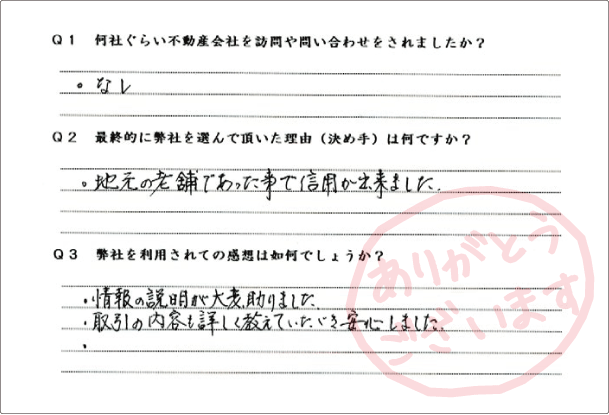 Q1 何社ぐらい不動産会社を訪問や問い合わせをされましたか？
・なし
Q2 最終的に弊社を選んで頂いた理由（決め手）は何ですか？
・地元の老舗であった事で信用が出来ました.
Q3 弊社を利用されての感想は如何でしょうか？
・情報の説明が大変助りました.
・取引の内容も詳しく教えていただき安心しました.
・
ありがとう
ございます